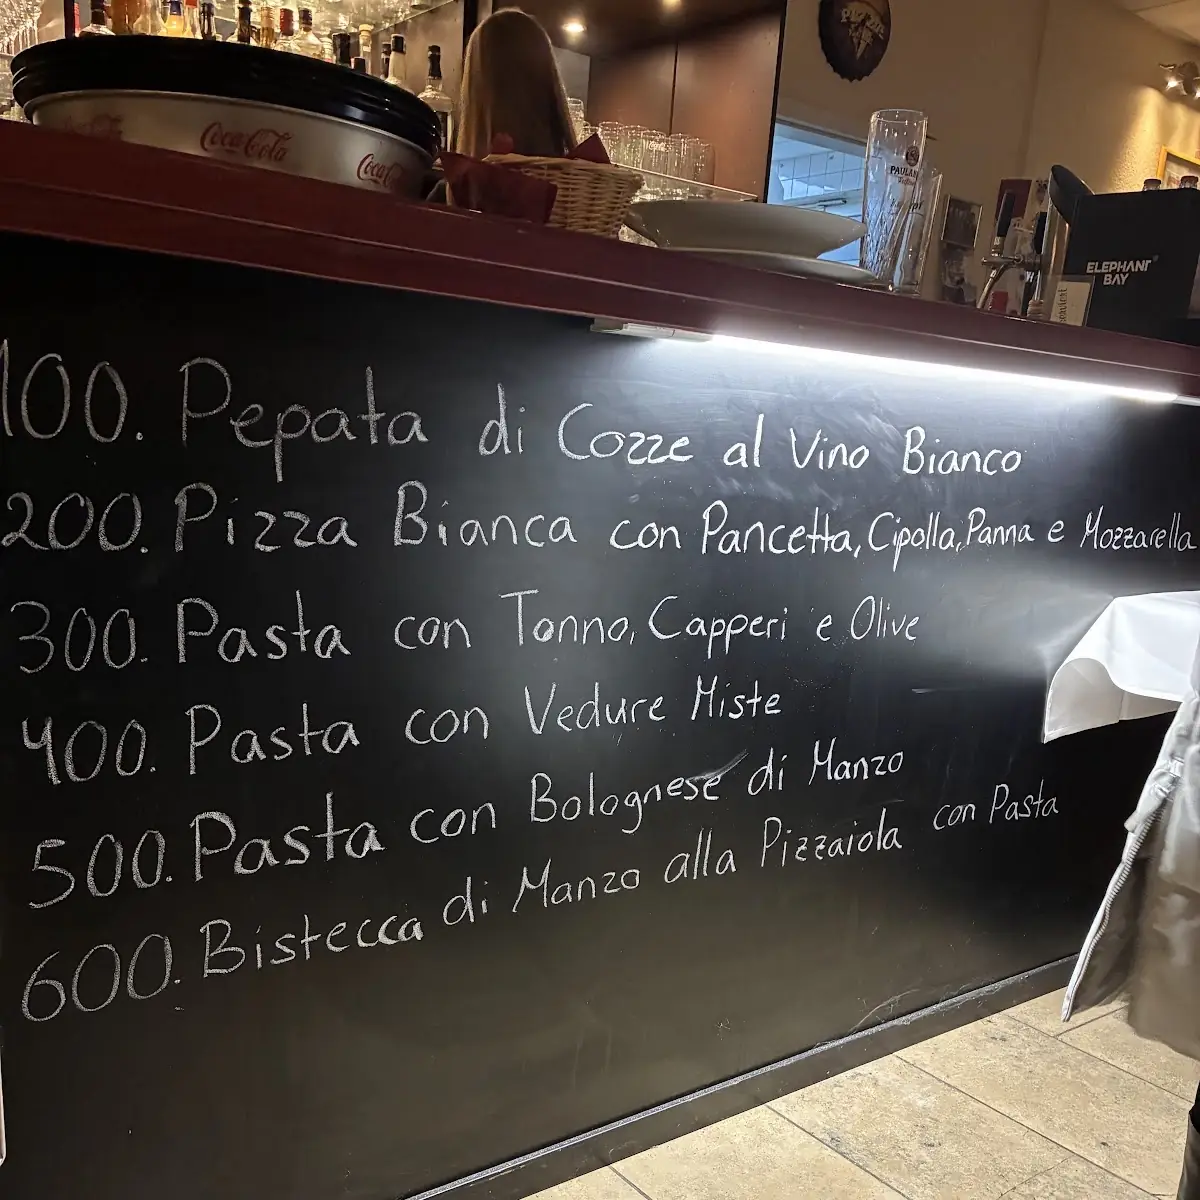 Coca-Cola
Coca-Cola
PAULANER
ELEPHANT BAY
100. Pepata di Cozze al Vino Bianco
200. Pizza Bianca con Pancetta, Cipolla, Panna e Mozzarella
300. Pasta con Tonno, Capperi e Olive
400. Pasta con Vedure Miste
500. Pasta con Bolognese di Manzo
600. Bistecca di Manzo alla Pizzaiola con Pasta